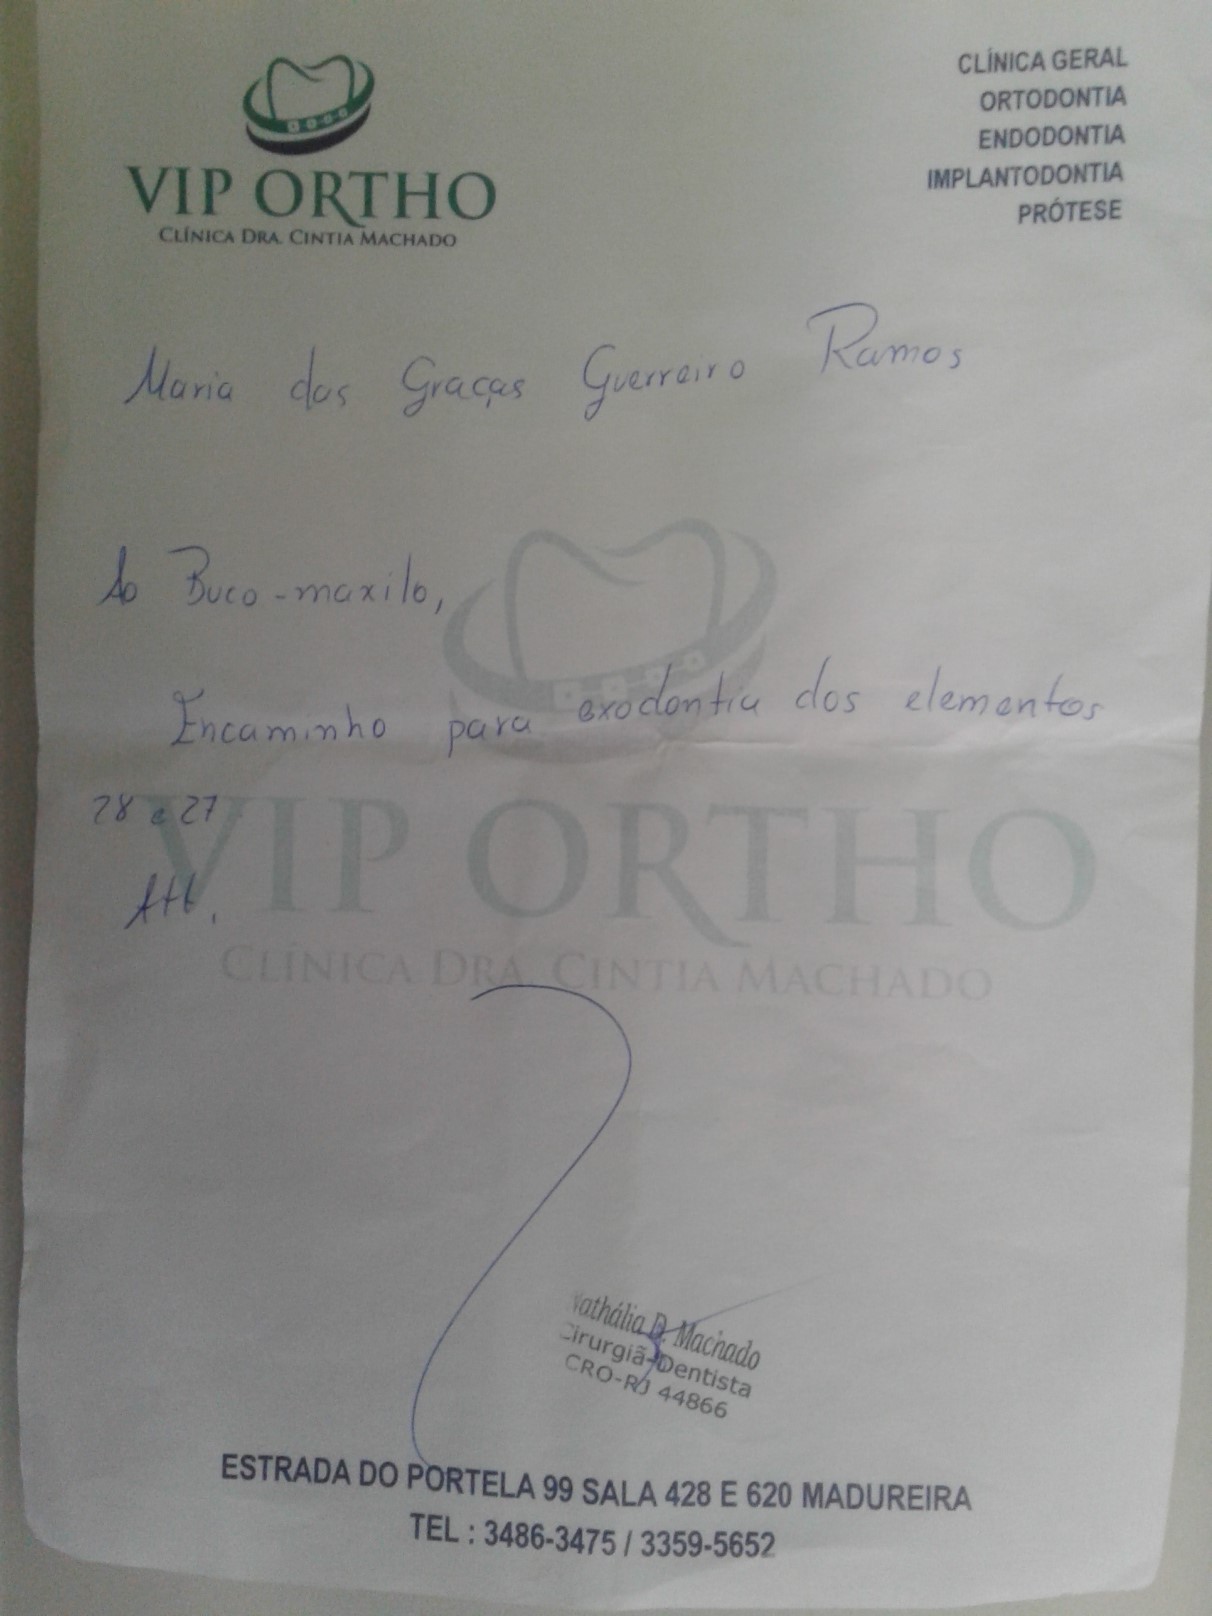 VIP ORTHO
CLÍNICA DRA. CINTIA MACHADO
CLÍNICA GERAL
ORTODONTIA
ENDODONTIA
IMPLANTODONTIA
PRÓTESE
Maria das Graças Guerreiro Ramos
Ao Buco-maxilo,
Encaminho para exodontia dos elementos
28 e 27
Att,
VIP ORTHO
CLÍNICA DRA. CINTIA MACHADO
Nathália D. Machado
Cirurgiã-Dentista
CRO-RJ 44866
ESTRADA DO PORTELA 99 SALA 428 E 620 MADUREIRA
TEL : 3486-3475 / 3359-5652